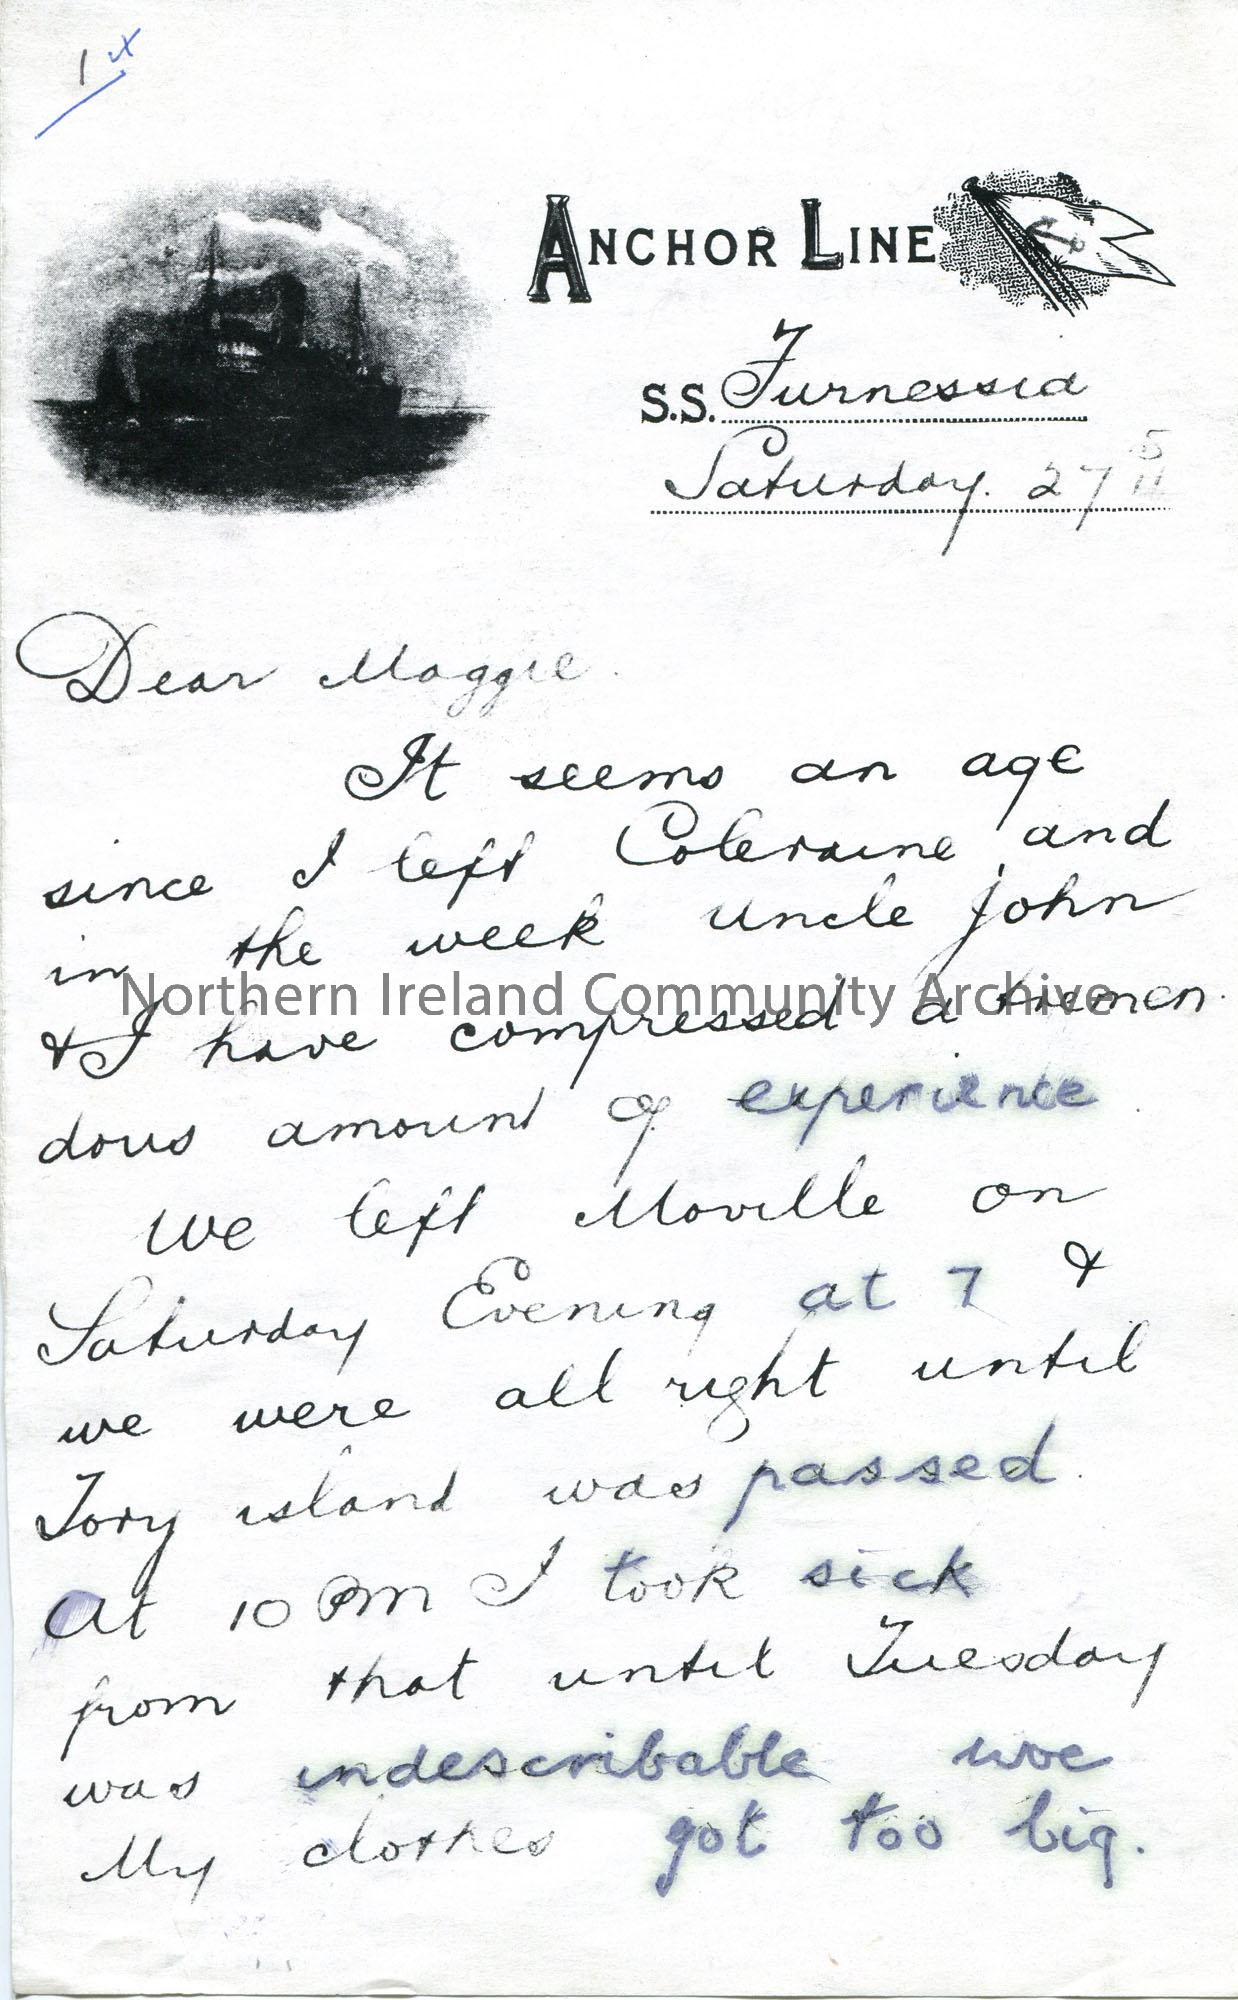 1st
ANCHOR LINE
S.S. Furnessia
Saturday. 27 5/11
Dear Maggie.
It seems an age
since I left Coleraine and
in the week uncle John
& I have compressed a tremen
Northern Ireland Community Archive
dous amount of experience.
We left Moville on
Saturday Evening at 7 &
we were all right until
Tory island was passed.
At 10 PM I took sick
from that until Tuesday
was indescribable woe
My clothes got too big.